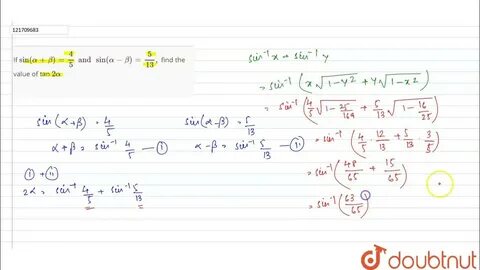 121709683
If sin(α + β) = 4/5 and sin(α − β) = 5/13, find the
value of tan 2α.
sin(α+β) = 4/5
α+β = sin⁻¹ 4/5 — ①
sin(α−β) = 5/13
α−β = sin⁻¹ 5/13 — ⑪
① + ⑪
2α = sin⁻¹ 4/5 + sin⁻¹ 5/13
sin⁻¹ x + sin⁻¹ y
= sin⁻¹ (x√1−y² + y√1−x²)
= sin⁻¹ (4/5 √1−25/169 + 5/13 √1−16/25)
= sin⁻¹ (4/5 · 12/13 + 5/13 · 3/5)
= sin⁻¹ (48/65 + 15/65)
= sin⁻¹ (63/65)
doubtnut